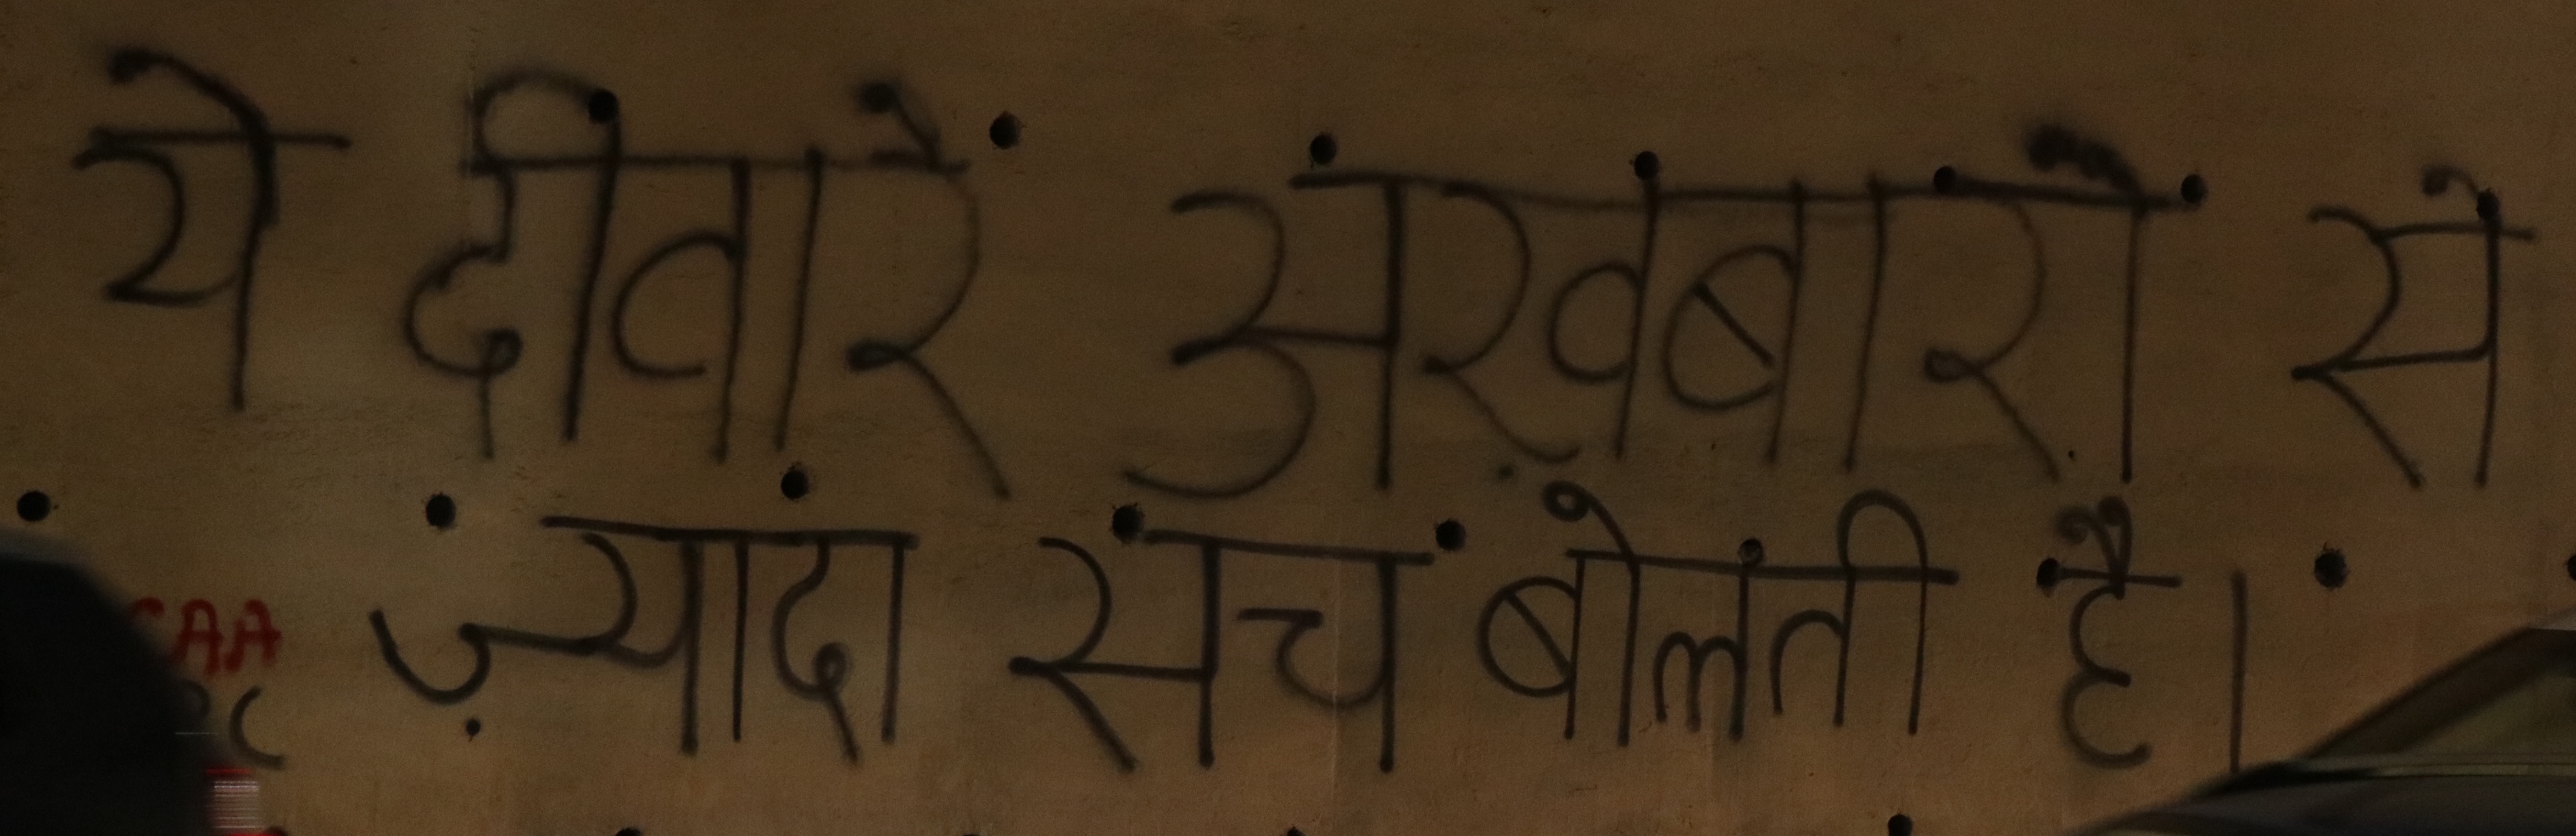 ये दीवारें अख़बारों से
ज़्यादा सच बोलती हैं।
CAA